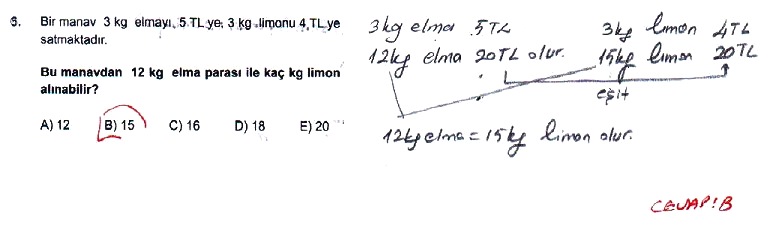 6. Bir manav 3 kg elmayı, 5 TL ye, 3 kg limonu 4 TL ye
satmaktadır.
Bu manavdan 12 kg elma parası ile kaç kg limon
alınabilir?
A) 12 B) 15 C) 16 D) 18 E) 20
3kg elma 5TL 3kg limon 4TL
12kg elma 20TL olur. 15kg limon 20TL
eşit
12kg elma = 15kg limon olur.
CEVAP: B